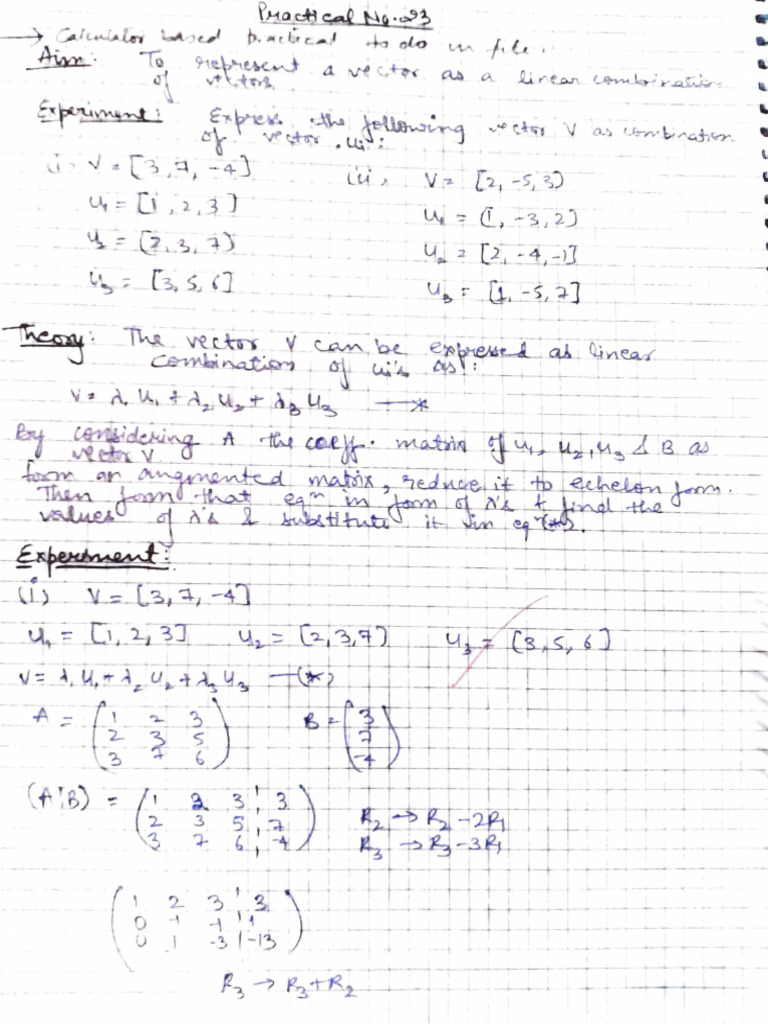 Practical No. 23
→ Calculator based practical to do in file.
Aim: To represent a vector as a linear combination
of vectors
Experiment: Express the following vector V as combination
of vector ui:
(i) V = [3, 7, -4]    (ii) V = [2, -5, 3)
u₁ = [1, 2, 3]    u₁ = (1, -3, 2)
u₂ = [2, 3, 7)    u₂ = [2, -4, -1]
u₃ = [3, 5, 6]    u₃ = [1, -5, 7]
Theory: The vector V can be expressed as linear
combination of ui's as:
V = λ₁ u₁ + λ₂ u₂ + λ₃ u₃ —*
By considering A the coeff. matrix of u₁, u₂, u₃ & B as
vector V
form an augmented matrix, reduce it to echelon form.
Then form that eqⁿ in form of λ's & find the
values of λ's & substitute it in eqⁿ(*).
Experiment:
(i) V = [3, 7, -4]
u₁ = [1, 2, 3]    u₂ = [2, 3, 7)    u₃ = [3, 5, 6]
V = λ₁ u₁ + λ₂ u₂ + λ₃ u₃ —(*)
A = ( 1 2 3    B = ( 3
2 3 5    7
3 7 6 )    -4 )
(A¦B) = ( 1 2 3 ¦ 3
2 3 5 ¦ 7    R₂ → R₂ - 2R₁
3 7 6 ¦ -4 )    R₃ → R₃ - 3R₁
( 1 2 3 ¦ 3
0 -1 -1 ¦ 1
0 1 -3 ¦ -13 )
R₃ → R₃ + R₂